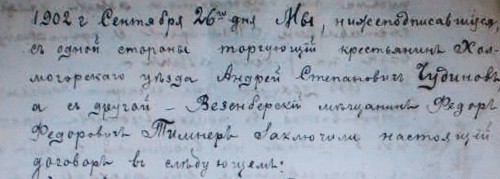 1902 г Сентября 26го дня Мы, нижеподписавшиеся,
съ одной стороны торгующій крестьянинъ Хол-
могорскаго уѣзда Андрей Степановичъ Чудиновъ
а съ другой – Везенберскій мѣщанинъ Федоръ
Федоровичъ Тимнеръ Заключили настоящій
договоръ въ слѣдующемъ: